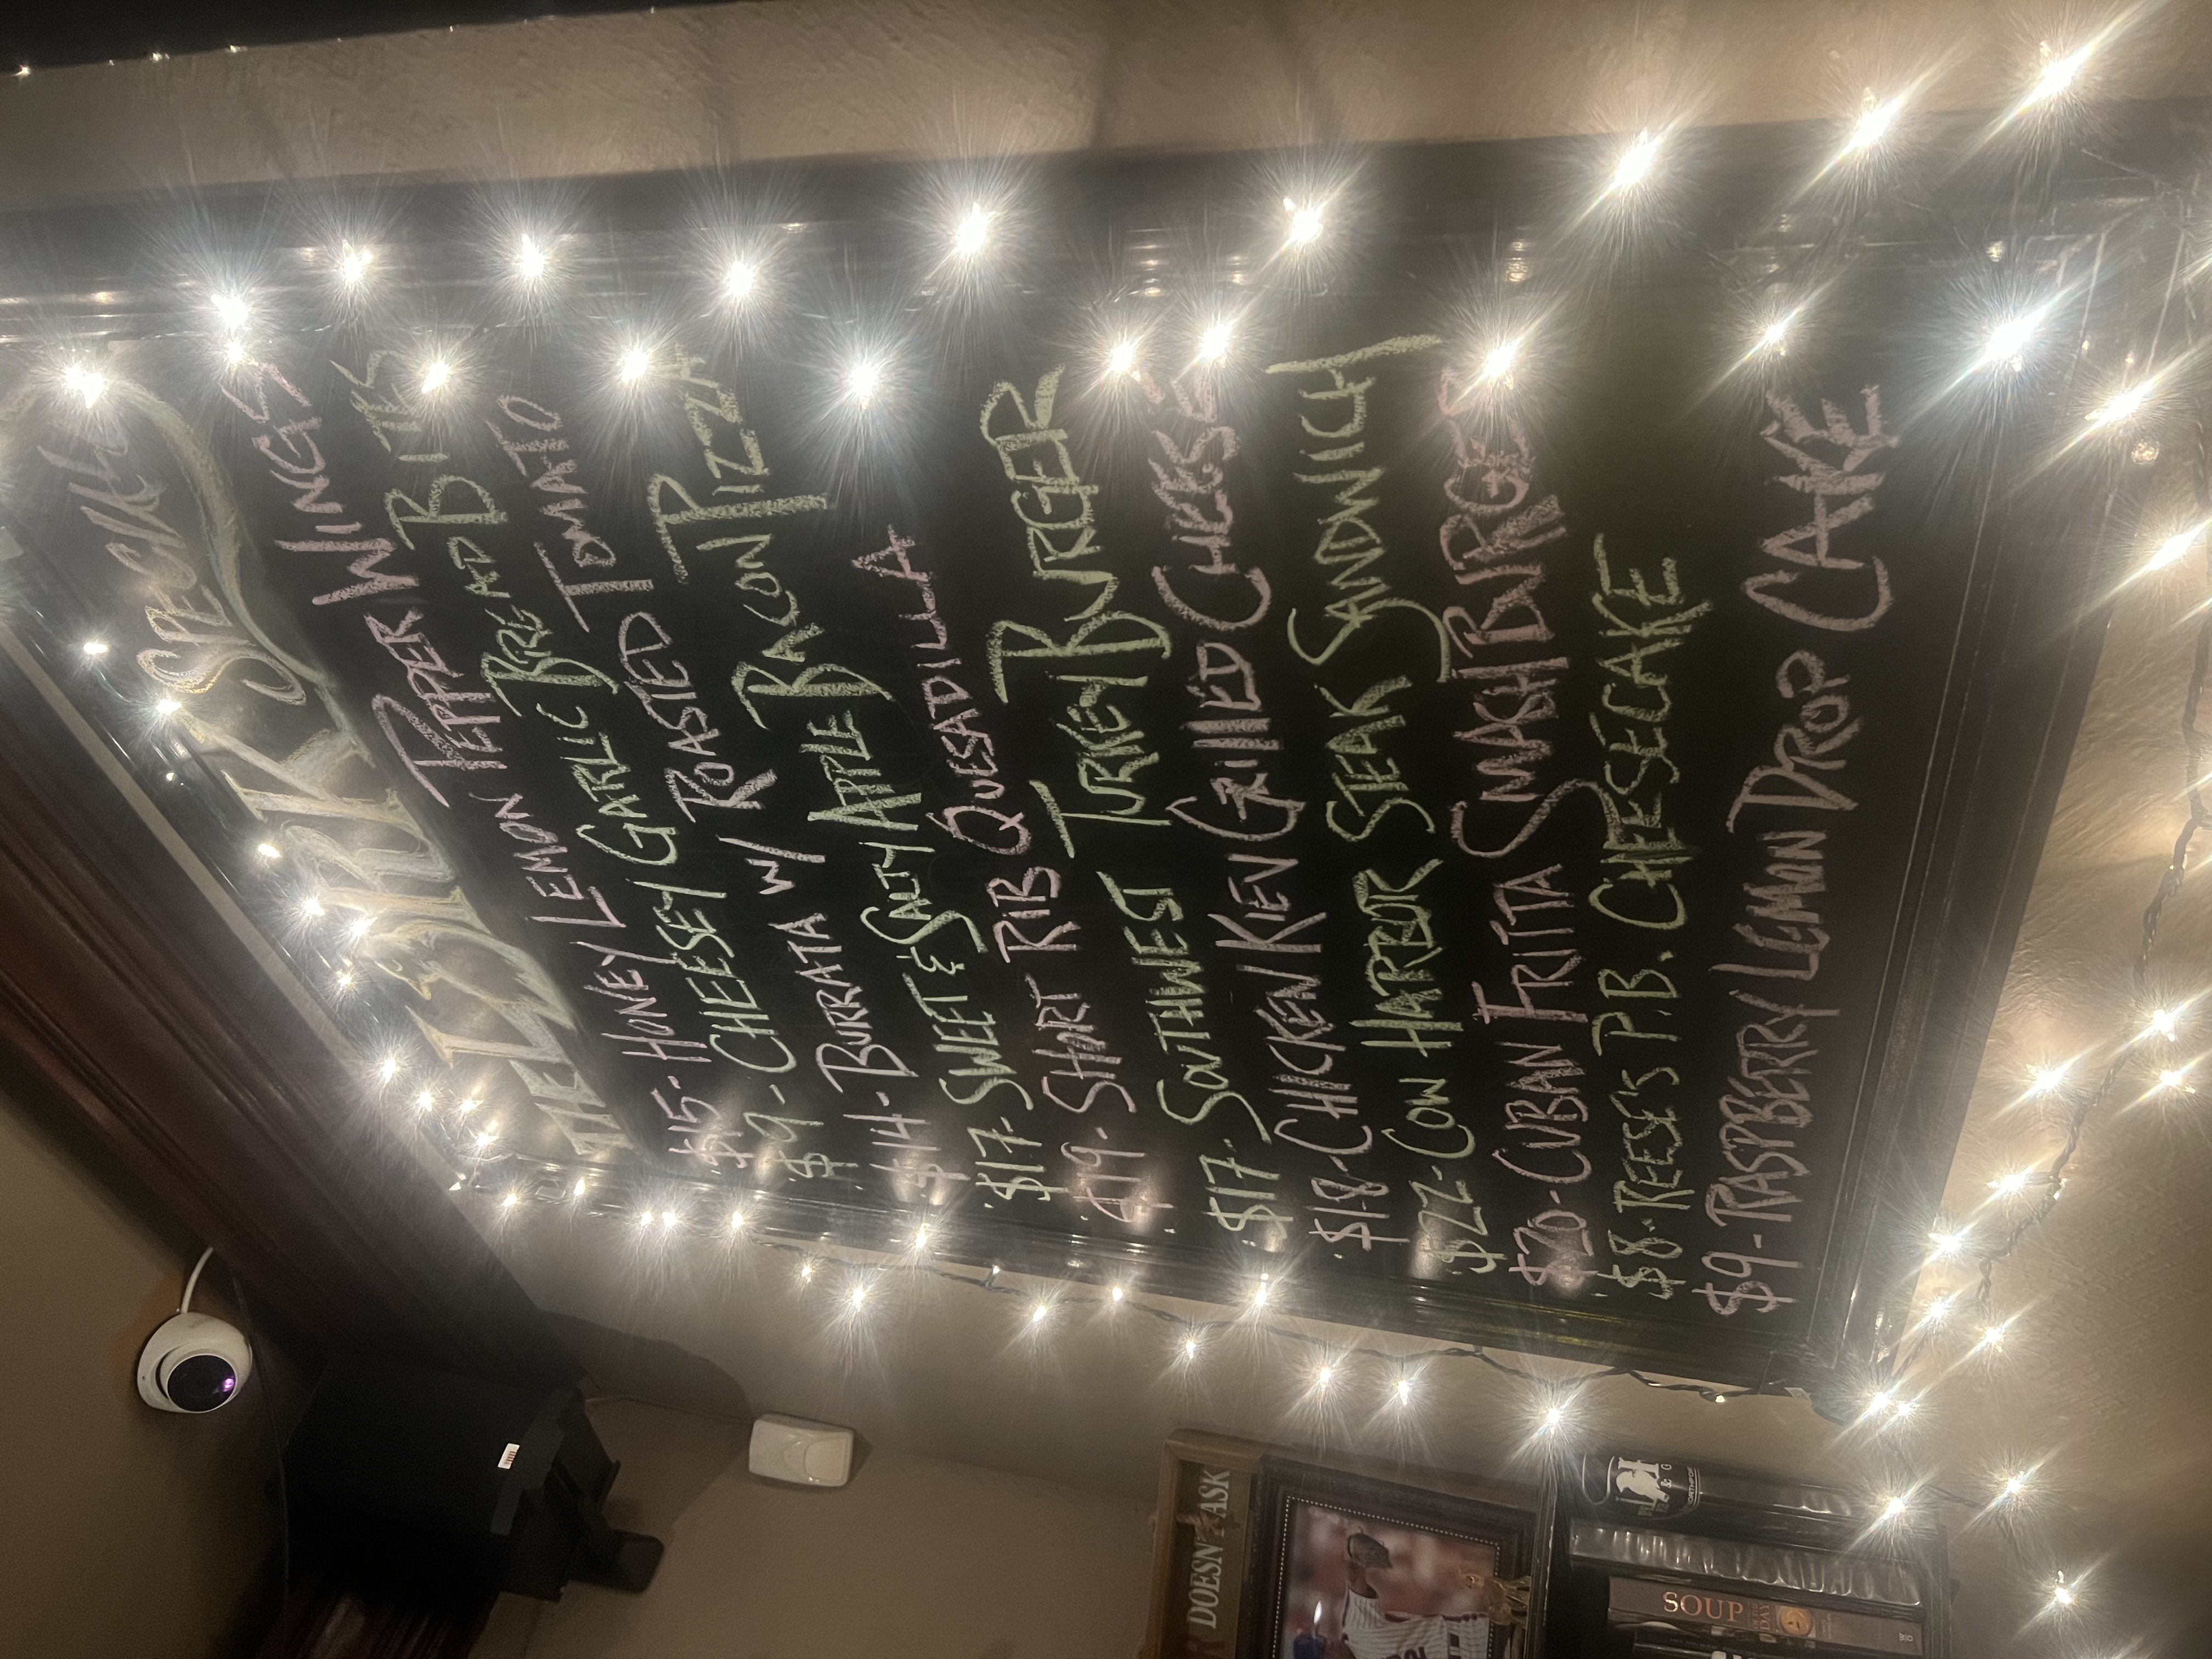 THE NIGHTLY SPECIALS
$15- HONEY LEMON PEPPER WINGS
$9- CHEESEY GARLIC BREAD BITES
$14- BURRATA W/ ROASTED TOMATO
$17- SWEET & SALTY APPLE BACON PIZZA
$19- SHORT RIB QUESADILLA
$17- SOUTHWEST TURKEY BURGER
$18- CHICKEN KIEV GRILLED CHEESE
$22- COW HARBOR STEAK SANDWICH
$20- CUBAN FRITA SMASHBURGER
$8- REESE'S P.B. CHEESECAKE
$9- RASPBERRY LEMON DROP CAKE
DOESN'T ASK
SOUP